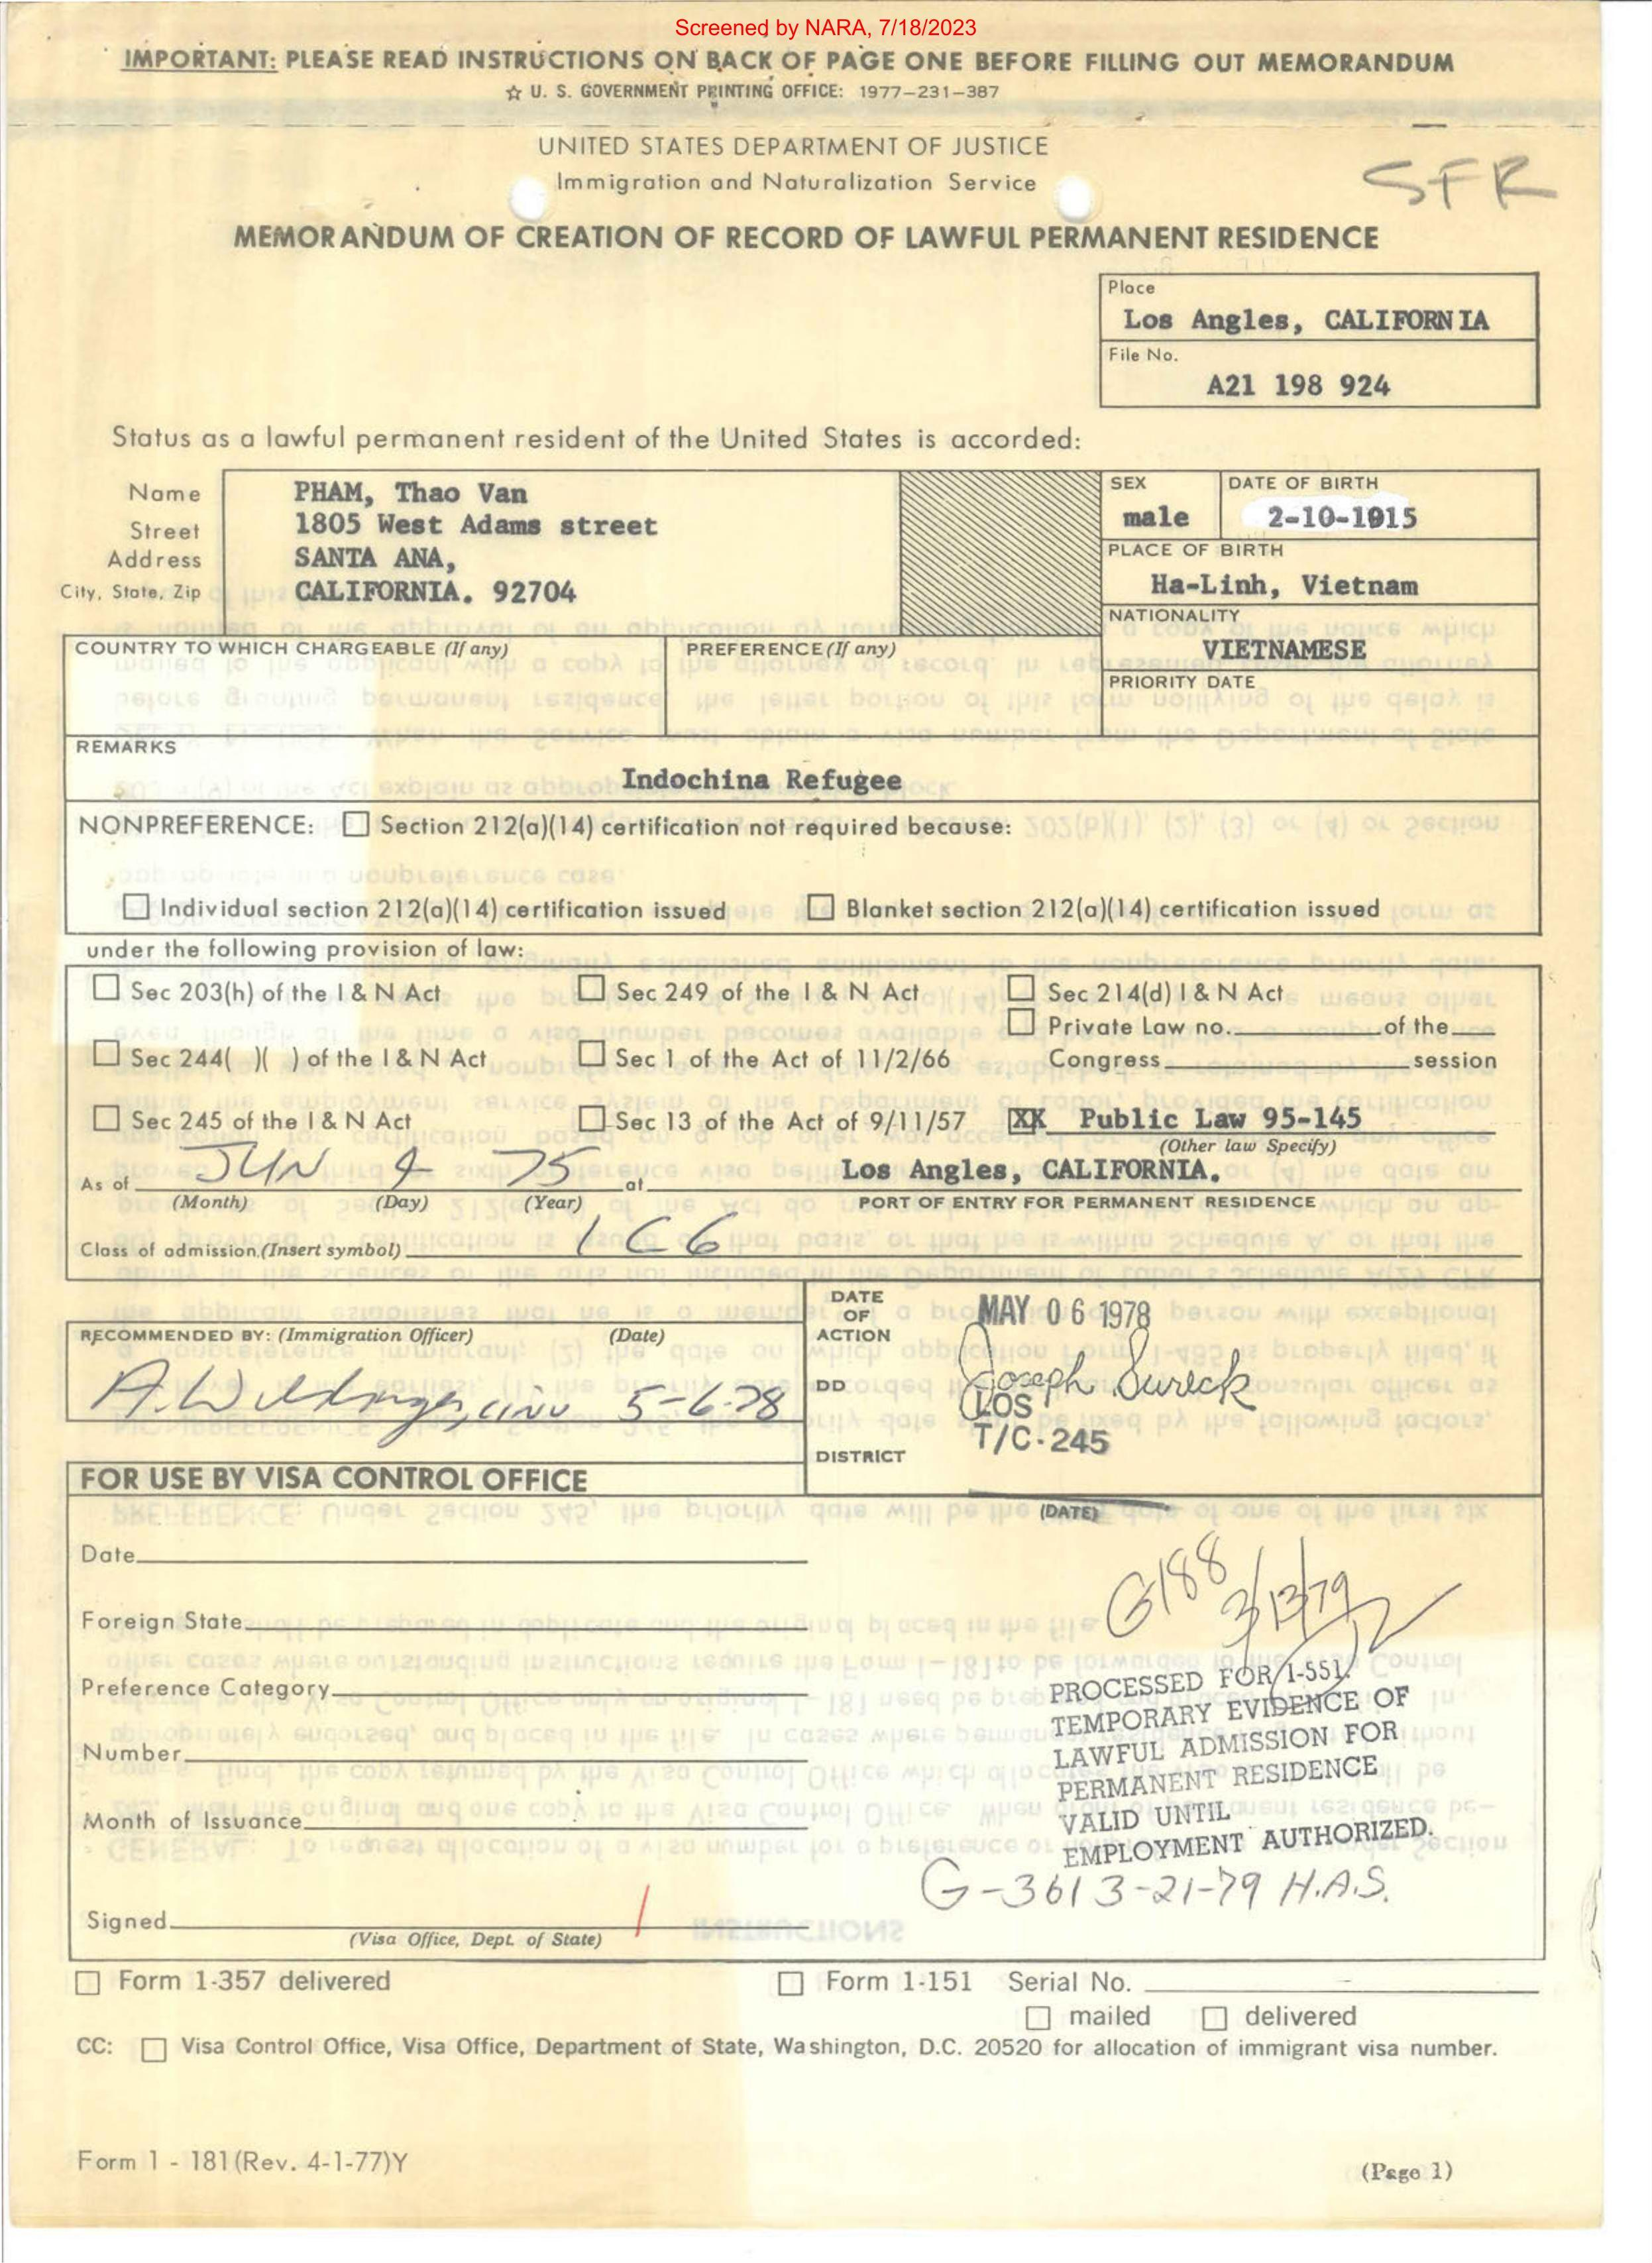 Screened by NARA, 7/18/2023
IMPORTANT: PLEASE READ INSTRUCTIONS ON BACK OF PAGE ONE BEFORE FILLING OUT MEMORANDUM
☆ U. S. GOVERNMENT PRINTING OFFICE: 1977–231–387
UNITED STATES DEPARTMENT OF JUSTICE
Immigration and Naturalization Service
SFR
MEMORANDUM OF CREATION OF RECORD OF LAWFUL PERMANENT RESIDENCE
Place
Los Angles, CALIFORNIA
File No.
A21 198 924
Status as a lawful permanent resident of the United States is accorded:
Name PHAM, Thao Van
Street 1805 West Adams street
Address SANTA ANA,
City, State, Zip CALIFORNIA. 92704
SEX male
DATE OF BIRTH 2-10-1915
PLACE OF BIRTH
Ha-Linh, Vietnam
NATIONALITY
VIETNAMESE
COUNTRY TO WHICH CHARGEABLE (If any) PREFERENCE (If any)
PRIORITY DATE
REMARKS
Indochina Refugee
NONPREFERENCE: ☐ Section 212(a)(14) certification not required because:
☐ Individual section 212(a)(14) certification issued ☐ Blanket section 212(a)(14) certification issued
under the following provision of law:
☐ Sec 203(h) of the I & N Act ☐ Sec 249 of the I & N Act ☐ Sec 214(d) I & N Act
☐ Private Law no. of the
☐ Sec 244( )( ) of the I & N Act ☐ Sec 1 of the Act of 11/2/66 Congress session
☐ Sec 245 of the I & N Act ☐ Sec 13 of the Act of 9/11/57 XX Public Law 95-145
(Other law Specify)
As of JUN 75 at Los Angles, CALIFORNIA.
(Month) (Day) (Year) PORT OF ENTRY FOR PERMANENT RESIDENCE
Class of admission.(Insert symbol) IC6
RECOMMENDED BY: (Immigration Officer) (Date)
5-6-78
DATE OF ACTION MAY 06 1978
DD Joseph Sureck
LOS
T/C-245
DISTRICT
FOR USE BY VISA CONTROL OFFICE
(DATE)
Date
G188
3/13/79
Foreign State
Preference Category
Number
Month of Issuance
PROCESSED FOR I-551.
TEMPORARY EVIDENCE OF
LAWFUL ADMISSION FOR
PERMANENT RESIDENCE
VALID UNTIL
EMPLOYMENT AUTHORIZED.
G-361 3-21-79 H.A.S.
Signed
(Visa Office, Dept. of State)
☐ Form 1-357 delivered ☐ Form 1-151 Serial No.
☐ mailed ☐ delivered
CC: ☐ Visa Control Office, Visa Office, Department of State, Washington, D.C. 20520 for allocation of immigrant visa number.
Form 1 - 181 (Rev. 4-1-77)Y
(Page 1)